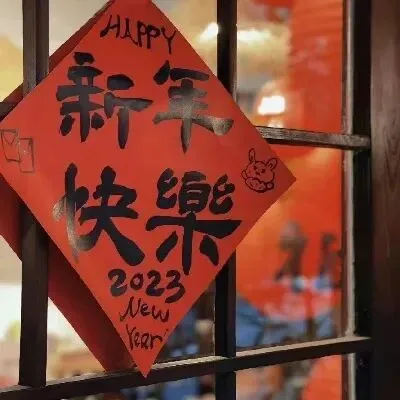 HAPPY
新年
快樂
2023
New
Year!